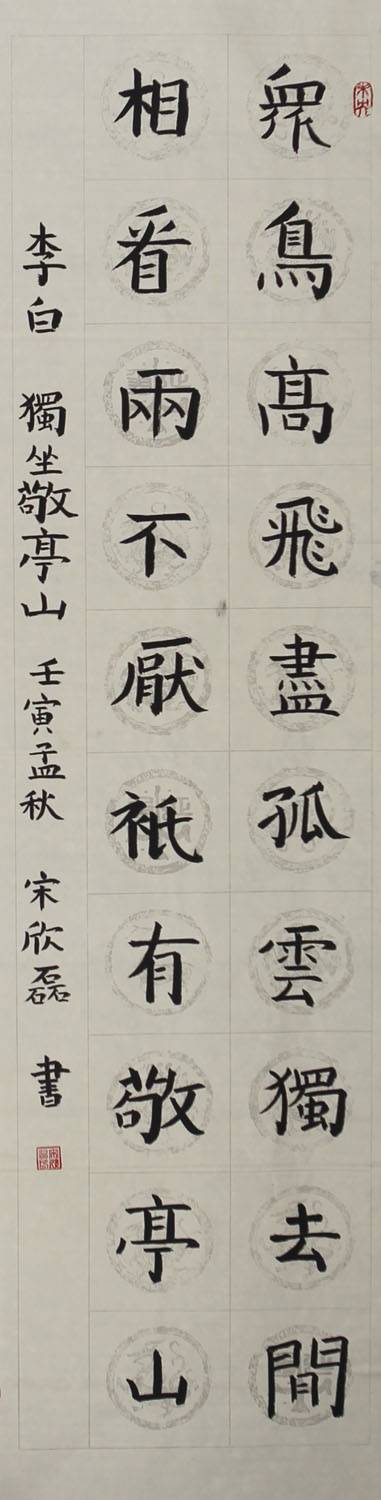 眾鳥髙飛盡孤雲獨去間
相看兩不厭衹有敬亭山
李白 獨坐敬亭山 壬寅孟秋 宋欣磊 書